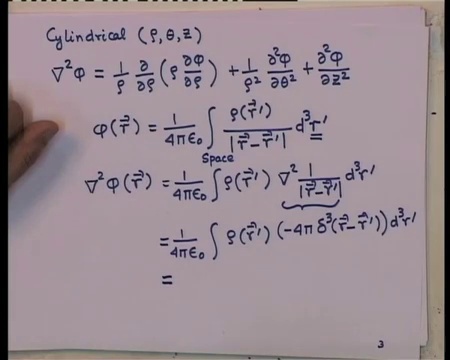 Cylindrical (ρ, θ, z)
∇²φ = 1/ρ ∂/∂ρ (ρ ∂φ/∂ρ) + 1/ρ² ∂²φ/∂θ² + ∂²φ/∂z²
φ(r⃗) = 1/4πε₀ ∫ ρ(r⃗′)/|r⃗−r⃗′| d³r′
Space
∇²φ(r⃗) = 1/4πε₀ ∫ ρ(r⃗′) ∇² 1/|r⃗−r⃗′| d³r′
= 1/4πε₀ ∫ ρ(r⃗′) (−4π δ³(r⃗−r⃗′)) d³r′
=
3